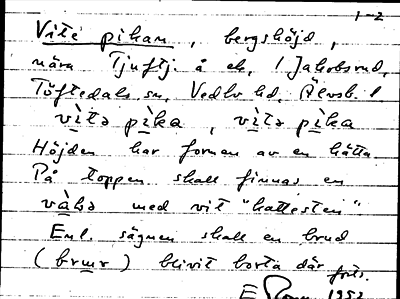 1-2
Vite pikan, bergshöjd,
nära Tjuftj. å ek, 1 Jakobsrud,
Töftedals sn, Vedbo hd, Älvsb. l
vìtə pìka, vìtə pìka
Höjden har formen av en hätta
På toppen skall finnas en
med vit "hattesten"
Enl. sägnen skall en brud
(brur) blivit borta där forts.
1952